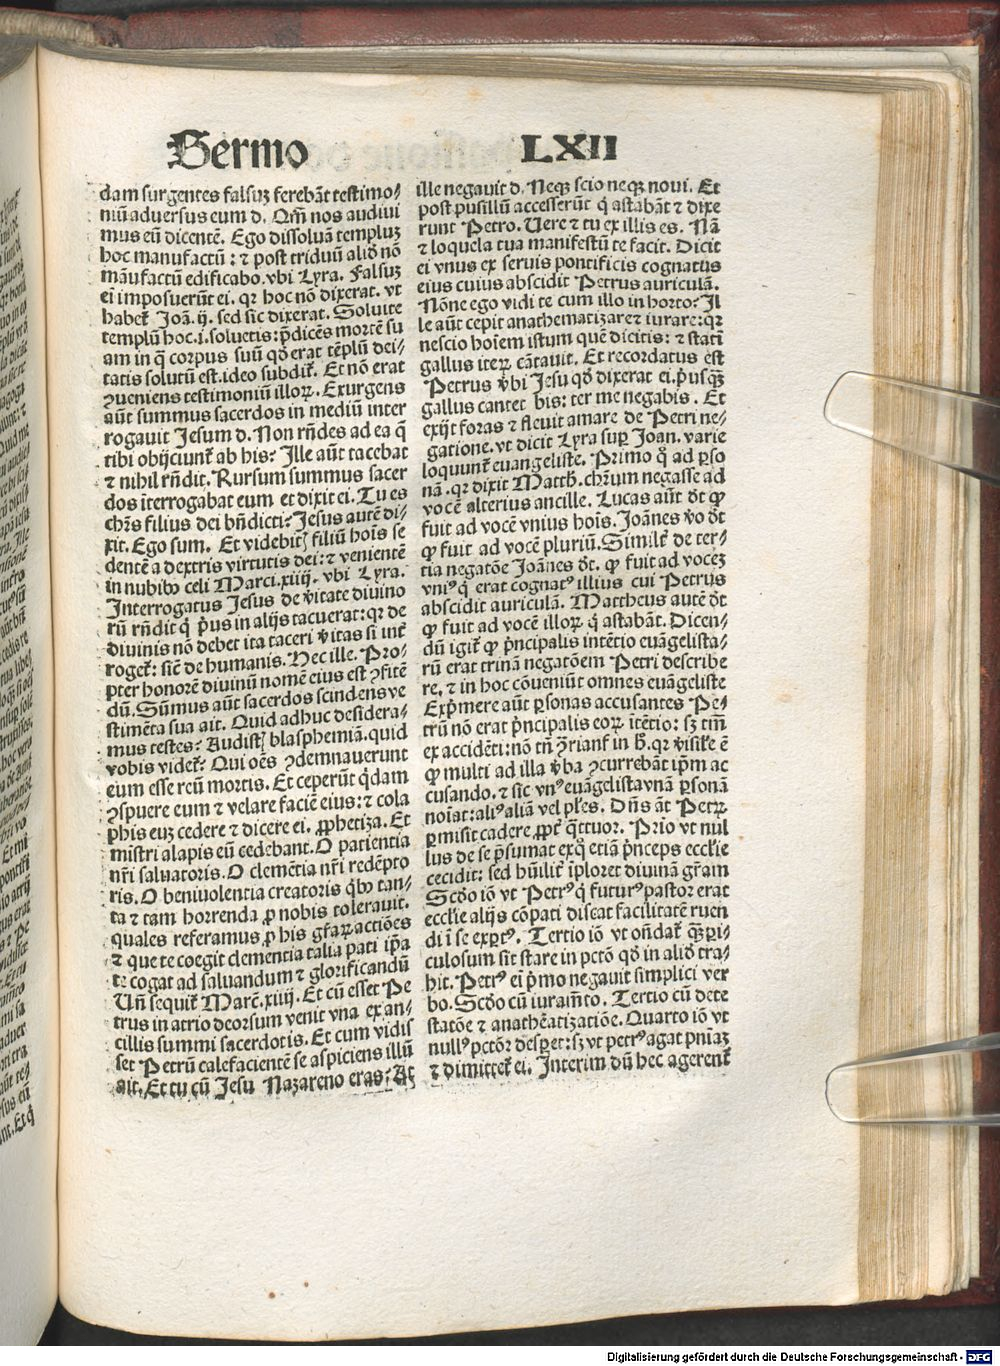 Sermo LXII
dam surgentes falsuʒ ferebāt testimo⸗
niū aduersus eum d. Qm̄ nos audiui
mus eū dicentē. Ego dissoluā templuʒ
hoc manufactū: ⁊ post triduū aliđ nō
māufactū edificabo. vbi Lyra. Falsuʒ
ei imposuerūt ei. qꝛ hoc nō dixerat. vt
habet̄ Joā. ij. sed sic dixerat. Soluite
templū hoc .i. soluetis: p̄dicēs mortē su
am in q̄ corpus suū qđ erat tēplū dei⸗
tatis solutū est. ideo subdit̄. Et nō erat
ꝯueniens testimoniū illoꝝ. Exurgens
aūt summus sacerdos in mediū inter
rogauit Jesum d. Non rn̄des ad ea q̄
tibi obijciunt̄ ab his? Ille aūt tacebat
⁊ nihil rn̄dit. Rursum summus sacer
dos īterrogabat eum et dixit ei. Tu es
chr̄s filius dei bn̄dicti? Jesus autē di⸗
xit. Ego sum. Et videbit̄ filiū hoīs se
dentē a dextris virtutis dei: ⁊ venientē
in nubibꝰ celi Marci. xiiij. vbi Lyra.
Interrogatus Jesus de v̄itate diuino
rū rn̄dit q̄ p̄us in alijs tacuerat: qꝛ de
diuinis nō debet ita taceri v̄itas si int̄
roget̄: sic̄ de humanis. Hec ille. Pro⸗
pter honorē diuinū nomē eius est ꝯfitē
dū. Sūmus aūt sacerdos scindens ve
stimēta sua ait. Quid adhuc desidera⸗
mus testes? Audist̄ blasphemiā. quid
vobis videt̄? Qui oēs ꝯdemnauerunt
eum esse reū mortis. Et ceperūt q̇dam
ꝯspuere eum ⁊ velare faciē eius: ⁊ cola
phis euʒ cedere ⁊ dicere ei. ꝓphetiza. Et
mīstri alapis eū cedebant. O patientia
nr̄i saluatoris. O clemētia nr̄i redēpto
ris. O beniuolentia creatoris q̇bꝰ tan⸗
ta ⁊ tam horrenda ꝓ nobis tolerauit.
quales referamus ꝓ his gr̄aꝝ actiōes
⁊ que te coegit clementia talia pati ip̄a
te cogat ad saluandum ⁊ glorificandū
Un̄ sequit̄ Marc̄. xiiij. Et cū esset Pe
trus in atrio deorsum venit vna ex an⸗
cillis summi sacerdotis. Et cum vidis
set Petrū calefacientē se aspiciens illū
ait. Et tu cū Jesu Nazareno eras? At
ille negauit d. Neqʒ scio neqʒ noui. Et
post pusillū accesserūt q̇ astabāt ⁊ dixe
runt Petro. Uere ⁊ tu ex illis es. Nā
⁊ loquela tua manifestū te facit. Dicit
ei vnus ex seruis pontificis cognatus
eius cuius abscidit Petrus auriculā.
Nōne ego vidi te cum illo in horto? Il
le aūt cepit anathematizare ⁊ iurare: qꝛ
nescio hoīem istum quē dicitis: ⁊ statī
gallus iteꝝ cātauit. Et recordatus est
Petrus v̄bi Jesu qđ dixerat ei. p̄usq̄ʒ
gallus cantet bis: ter me negabis. Et
exijt foras ⁊ fleuit amare de Petri ne⸗
gatione. vt dicit Lyra suꝑ Joan. varie
loquunt̄ euangeliste. Primo q̄ ad ꝑso
nā. qꝛ dixit Matth. chr̄um negasse ad
vocē alterius ancille. Lucas aūt dt̄ ꝙ
fuit ad vocē vnius hoīs. Joānes v̄o dt̄
ꝙ fuit ad vocē pluriū. Similt̄ de ter⸗
tia negatōe Joānes dt̄. ꝙ fuit ad voceʒ
vniꝰ q̇ erat cognatꝰ illius cui Petrus
abscidit auriculā. Mattheus autē dt̄
ꝙ fuit ad vocē illoꝝ q̇ astabāt. Dicen⸗
dū igit̄ ꝙ p̄ncipalis intētio euāgelista⸗
rū erat trinā negatōem Petri describe
re, ⁊ in hoc cōueniūt omnes euāgeliste
Exp̄mere aūt ꝑsonas accusantes Pe⸗
trū nō erat p̄ncipalis eoꝝ ītētio: sʒ tm̄
ex accidēti: nō tn̄ ꝯ̄riant̄ in h̄. qꝛ v̄isil̄e ē
ꝙ multi ad illa v̄ba ꝯcurrebāt ip̄m ac
cusando. ⁊ sic vnꝰ euāgelista vnā ꝑsonā
noīat: aliꝰ aliā vel pl̄es. Dn̄s āt Petꝝ
ꝑmisit cadere ꝓpt̄ q̄ttuor. Prīo vt nul
lus de se p̄sumat exq̊ etiā p̄nceps eccl̄ie
cecidit: sed hūilit̄ īploret diuinā gr̄am
Scđo iō vt Petrꝰ q̇ futurꝰ pastor erat
eccl̄ie alijs cōpati discat facilitatē ruen
di ī se exꝑtꝰ. Tertio iō vt on̄dat̄ q̄ʒ ꝑi⸗
culosum sit stare in pctō qđ in aliđ tra⸗
hit. Petrꝰ ei p̄mo negauit simplici ver
bo. Scđo cū iuram̄to. Tertio cū dete
statōe ⁊ anathēatizatiōe. Quarto iō vt
nullꝰ pctōꝛ desꝑet: sʒ vt petrꝰ agat pn̄iaʒ
⁊ dimittet̄ ei. Interim dū hec agerent̄
Digitalisierung gefördert durch die Deutsche Forschungsgemeinschaft - DFG